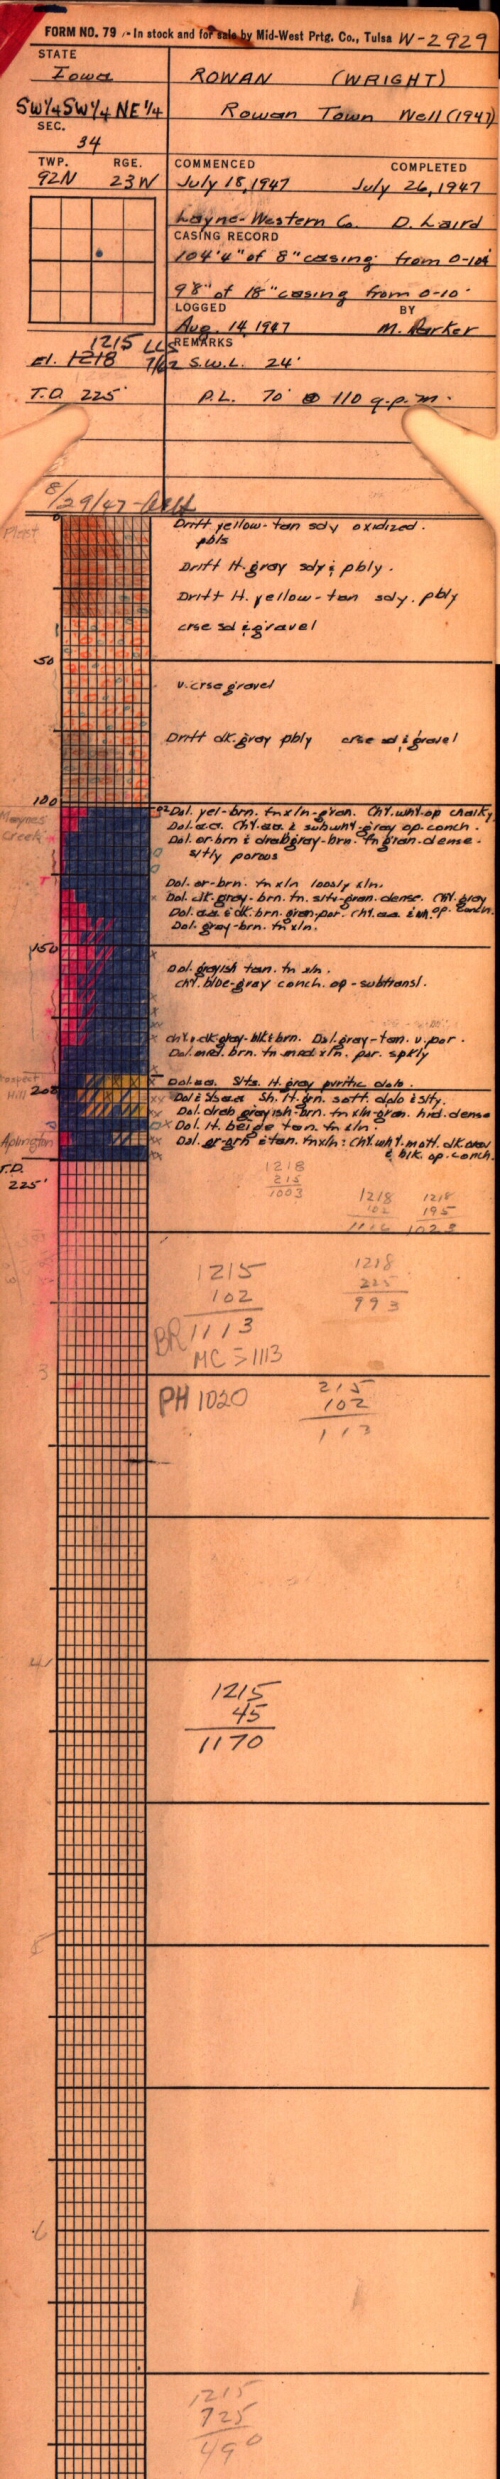 FORM NO. 79 - In stock and for sale by Mid-West Prtg. Co., Tulsa W-2929
STATE
Iowa ROWAN (WRIGHT)
SW¼SW¼NE¼ Rowan Town Well (1947)
SEC.
34
TWP. RGE. COMMENCED COMPLETED
92N 23W July 18, 1947 July 26, 1947
Layne-Western Co. D. Laird
CASING RECORD
104'4" of 8" casing from 0-104'
9'8" of 18" casing from 0-10'
LOGGED BY
Aug. 14, 1947 M. Parker
1215 LLS REMARKS
El. 1218 7/62 S.W.L. 24'
T.D. 225' P.L. 70' @ 110 g.p.m.
8/29/47
0
Pleist Drift yellow-tan sdy oxidized.
pbls
Drift lt. gray sdy & pbly.
Drift lt. yellow-tan sdy. pbly
crse sd & gravel
50
v. crse gravel
Drift dk. gray pbly crse sd & gravel
100
Maynes Creek
102 Dol. yel-brn. fn xln-gran. Cht. wht-op chalky
Dol. a.a. Cht. aa. & subwht-gray op. conch.
Dol. or-brn & drab gray-brn. fn gran-dense.
sltly porous
Dol. or-brn. fn xln loosly xln.
Dol. dk. gray-brn. fn. slty-gran. dense. Cht. gray
Dol. aa. & dk. brn. gran-por. Cht. aa. & wh. op. conch.
Dol. gray-brn. fn xln.
150
Dol. grayish tan. fn xln.
Cht. blue-gray conch. op-subtransl.
cht. dk. gray-blk & brn. Dol. gray-tan. v. por.
Dol. med. brn. fn med. xln. por. sprkly
Prospect Hill
Dol. aa. Slts. lt. gray pyritic dolo.
200
Dol & Slts aa Sh. lt. grn. soft. dolo & slty.
Dol. drab grayish-brn. fn xln-gran. hrd. dense
Dol. lt. beige tan. fn xln.
Aplington Dol. gr-grn & tan. fn xln: Cht. wht. mott. dk. gray
& blk. op. conch.
T.D.
225'
1218
215
1003
1218
102
1116
1218
195
1023
1215
102
1113
BR
MC > 1113
1218
225
993
3
PH 1020
215
102
113
4
1215
45
1170
5
6
1215
725
490